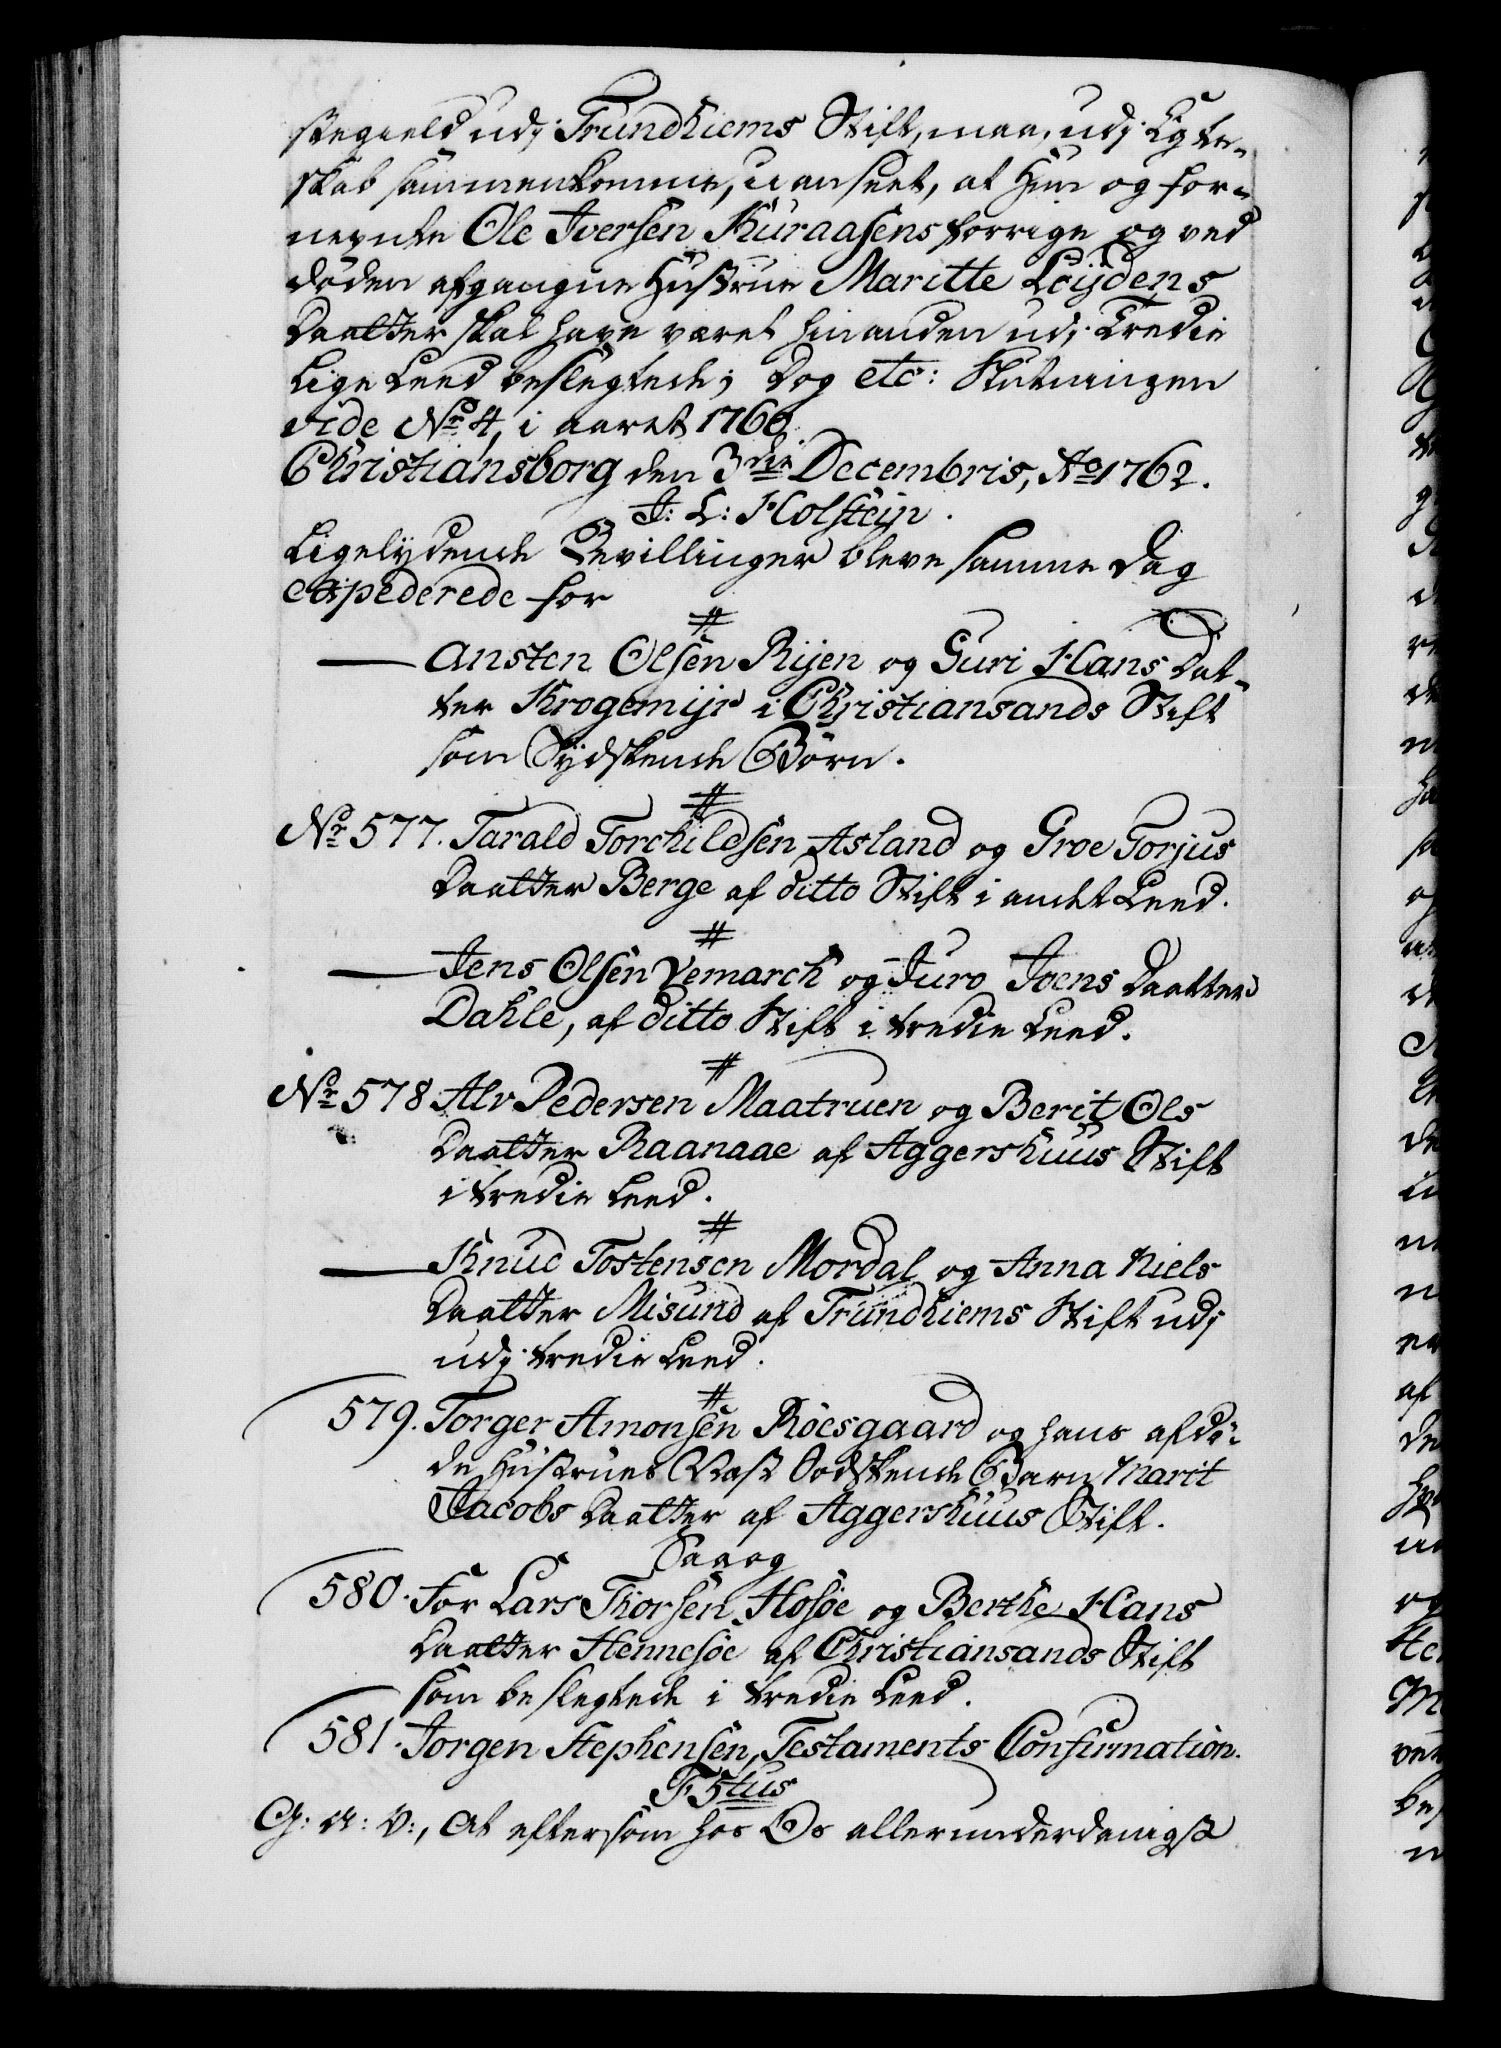 stegield udj Trundhiems Stift, maa, udj Egte-
skab sammenkomme, uanseet, at Hun og for-
nevnte Ole Iversen Kuraasens forrige og ved
døden afgangne Hustrue Maritte Loÿdens
Daatter skal have været hinanden udj Tredie
Lige Leed beslegtede; Dog etc: Slutningen
vide No 4, i aaret 1760.
Christiansborg den 3die Decembris, Ao 1762.
J: L: Holstein.
Ligelydende Bevillinger bleve samme Dag
expederede for
#
— Ansten Olsen Rijen og Guri Hans Dat-
ter Krogemijr i Christiansands Stift
som Sydskende Børn.
#
Nr 577. Tarald Torchildsen Asland og Groe Torjus
Daatter Berge af ditto Stift i andet Leed.
#
— Jens Olsen Vemarch og Juro Joens Daatter
Dahle, af ditto Stift i tredie Leed.
#
Nr 578 Alv Pedersen Maatruen og Berit Ols
Daatter Raanaae af Aggershuus Stift
i tredie Leed.
#
— Knud Tostensen Mordal og Anna Niels
Daatter Misund af Trundhiems Stift udj
udj tredie Leed.
#
579. Torger Amonsen Röesgaard og hans afdö-
de Hustrues Næst Sødskende Barn Marit
Jacobs Daatter af Aggershuus Stift.
Saa og
580. For Lars Thorsen Hosöe og Berthe Hans
Daatter Hennesöe af Christiansands Stift
som beslegtede i tredie Leed.
581. Jorgen Stephensen, Testaments Confirmation.
F 5tus
G: A: V:, At eftersom hos Os allerunderdanigst